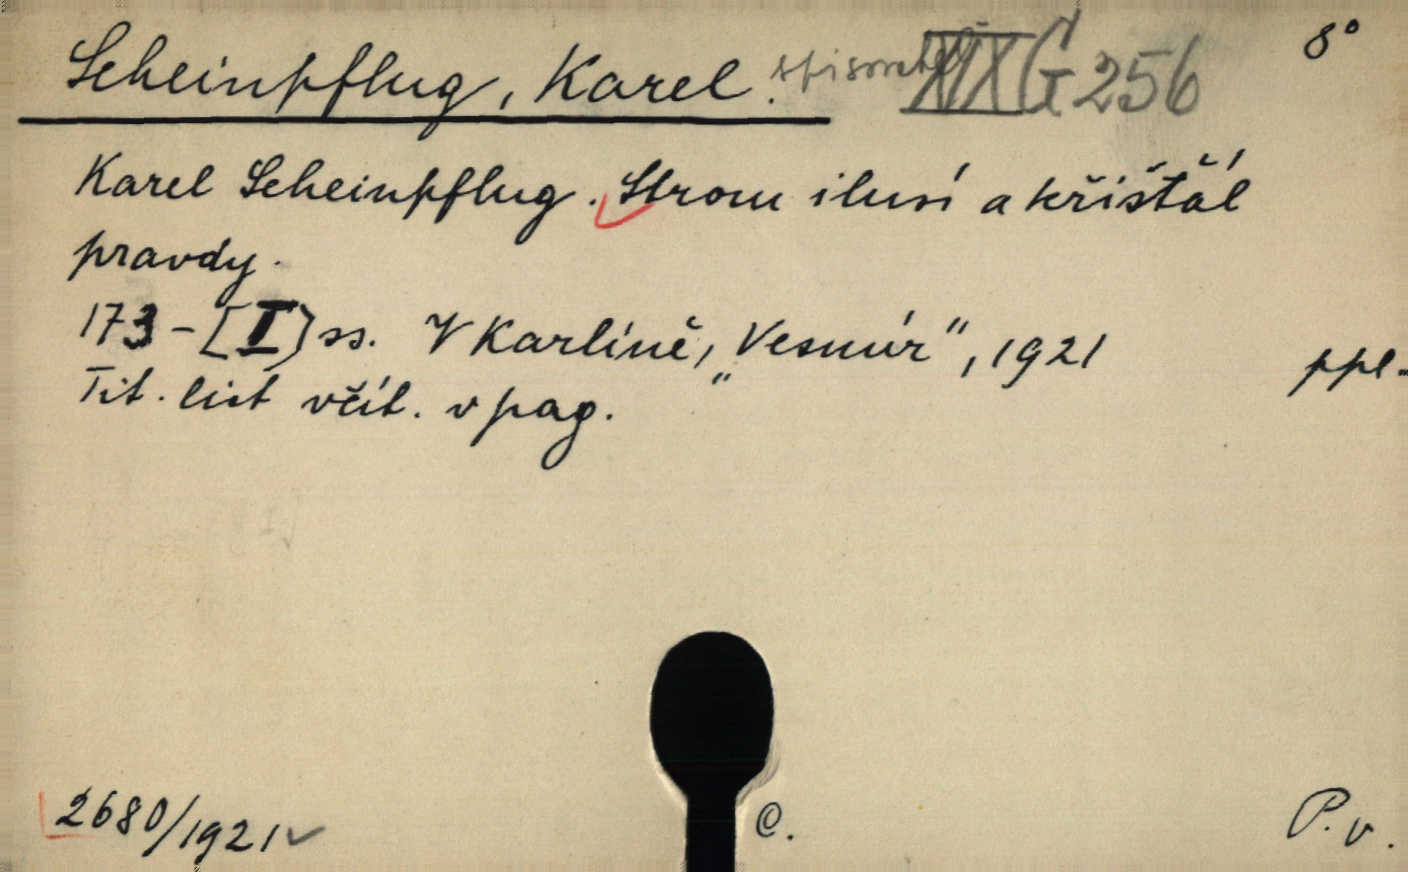 Scheinpflug, Karel. spisovatel XIX G 256 8°
Karel Scheinpflug. Strom ilusí a křišťál
pravdy.
173-[I] ss. V Karlíně, „Vesmír", 1921 ppl.
Tit. list včít. v pag.
2680/1921 C. P. v.